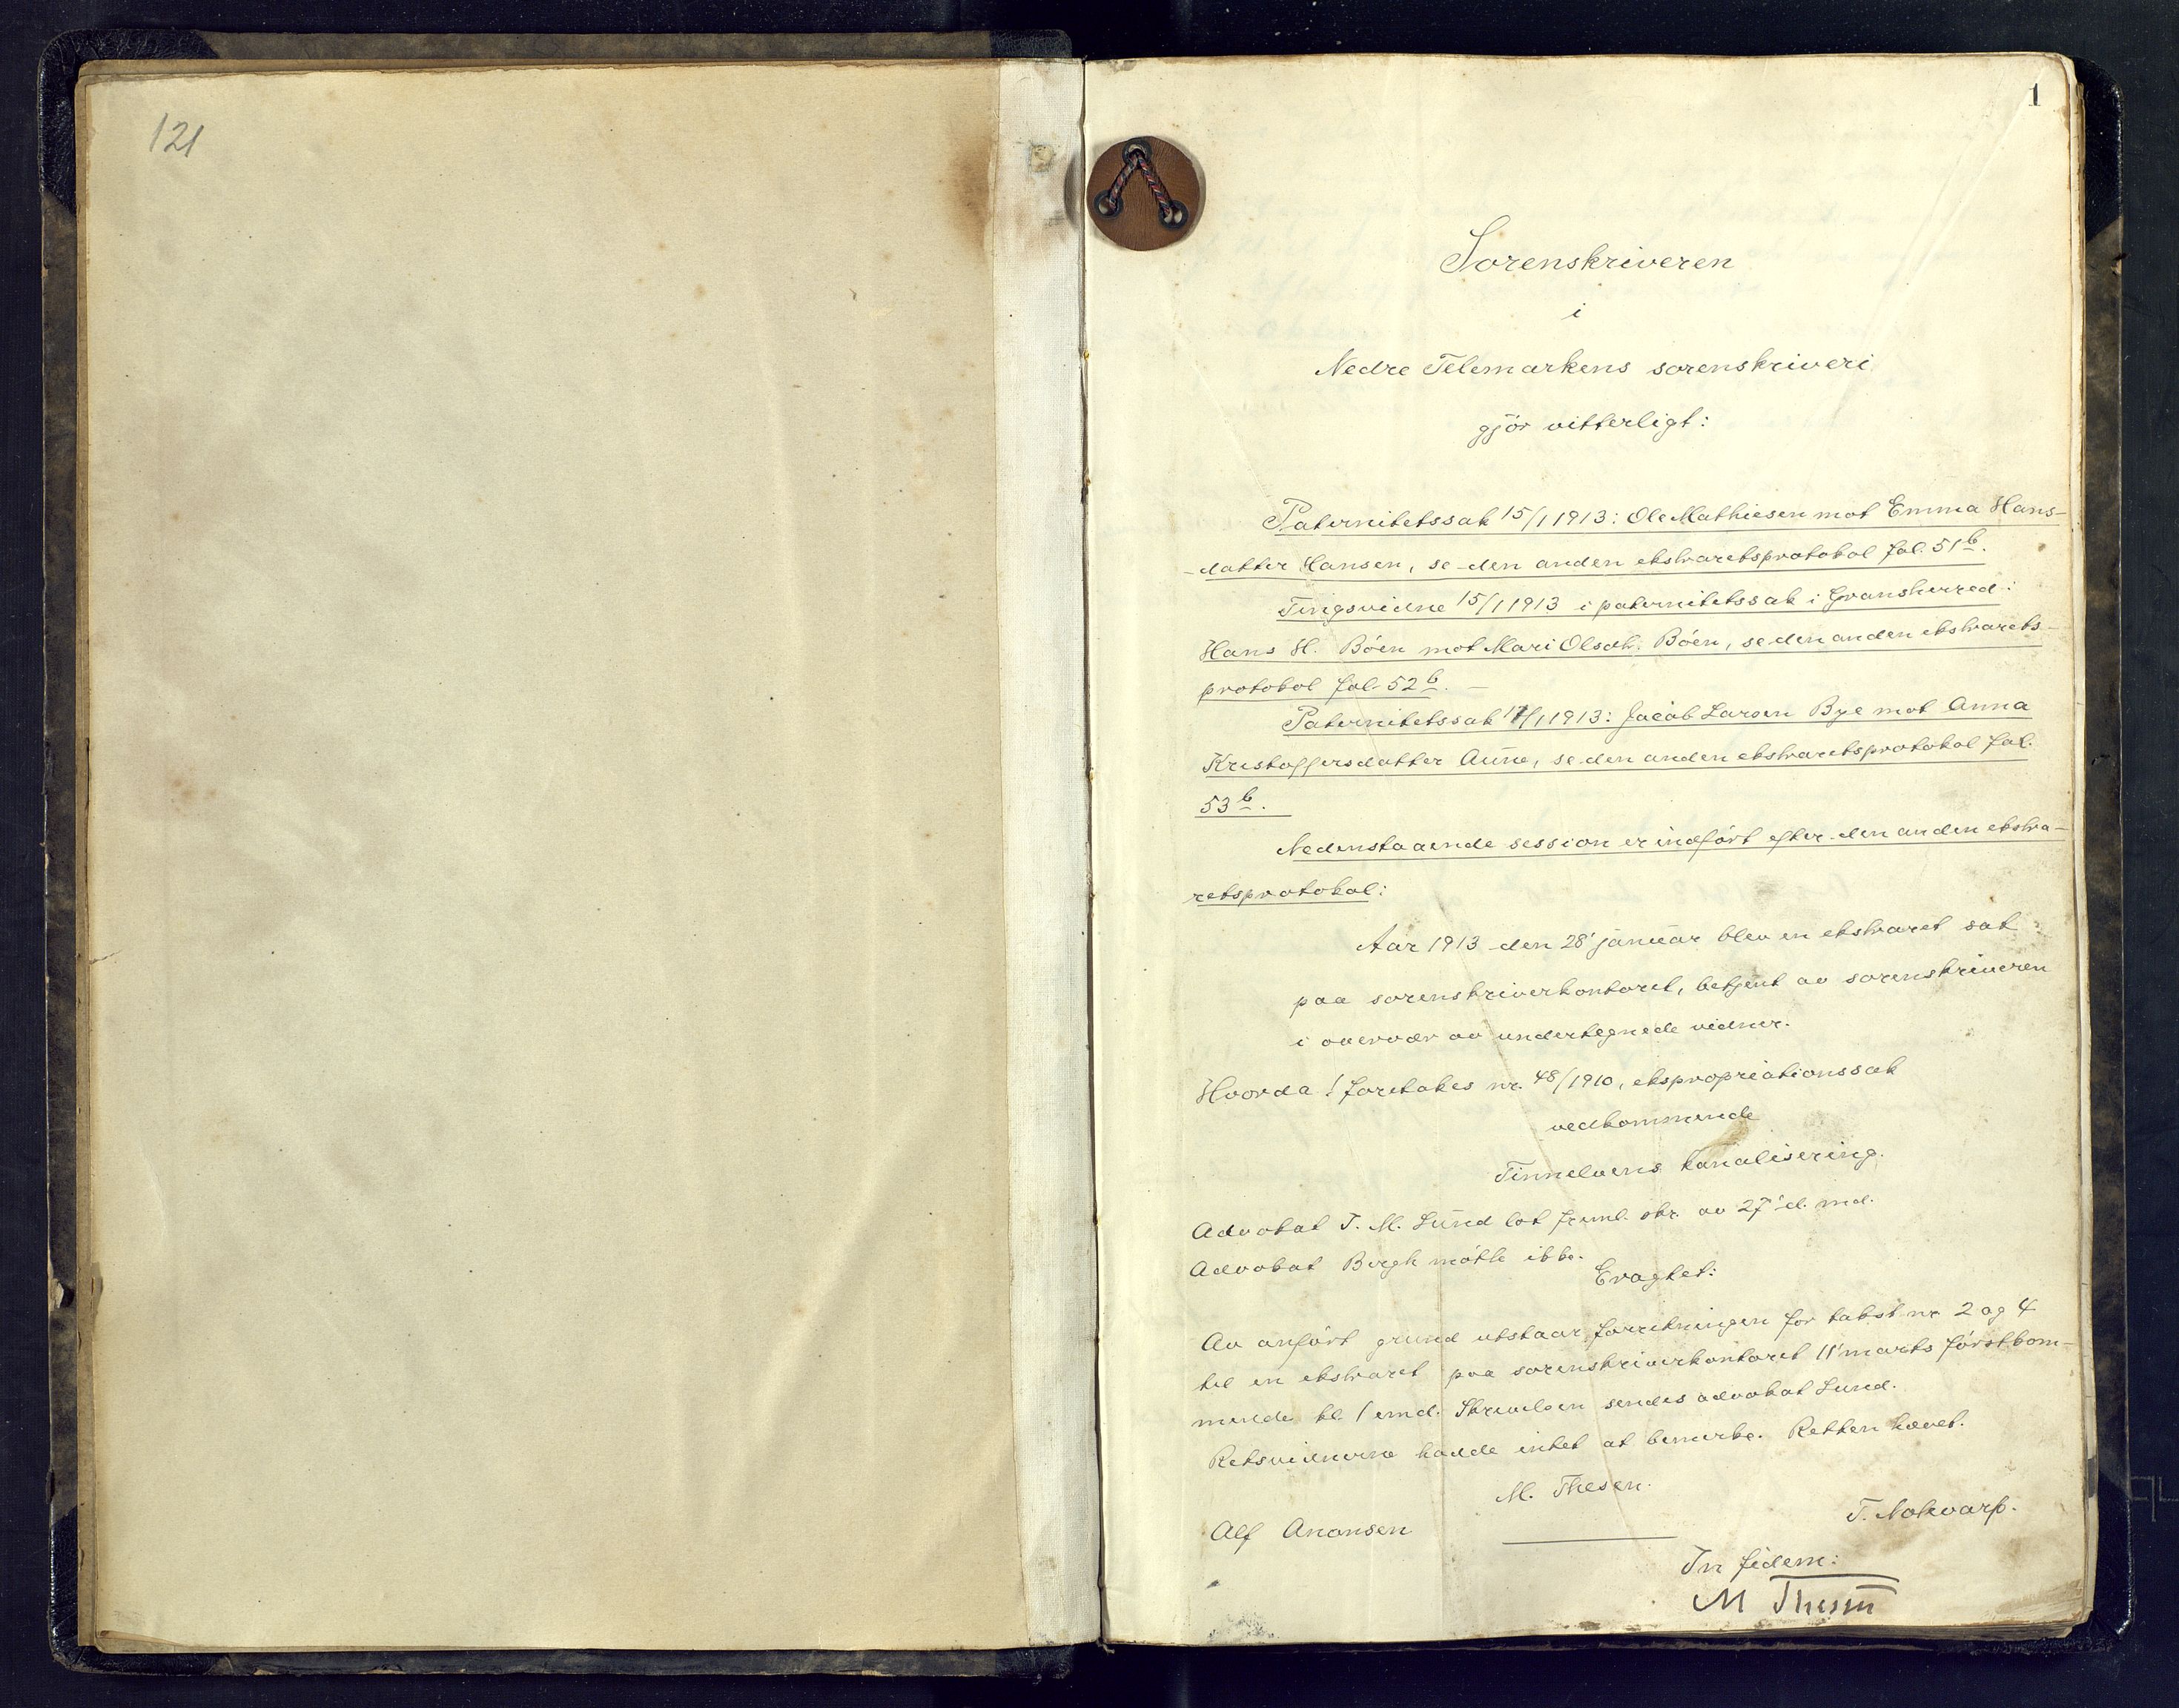 121
1
Sorenskriveren
i
Nedre Telemarkens sorenskriveri
gjör vitterligt:
Paternitetssak 15/1 1913: Ole Mathiesen mot Emma Hans-
-datter Hansen, se den anden ekstraretsprotokol fol. 51b.
Tingsvidne 15/1 1913 i paternitetssak i Gransherred:
Hans H. Böen mot Mari Olsdt. Böen, se den anden ekstrarets-
protokol fol. 52b. —
Paternitetssak 17/1 1913: Jacob Larsen Bye mot Anna
Kristoffersdatter Aune, se den anden ekstraretsprotokol fol.
53b.
Nedenstaaende session er indført efter den anden ekstra-
retsprotokol:
Aar 1913 den 28' januar blev en ekstraret sat
paa sorenskriverkontoret, betjent av sorenskriveren
i overvær av undertegnede vidner.
Hvorda: foretokes nr. 48/1910, ekspropriationssak
vedkommende
Tinnelvens kanalisering.
Advokat T. M. Lund lot freml. skr. av 27' d. md.
Advokat Bergh mötte ikke.
Eragtet:
Av anfört grund utstaar forretningen for takst nr 2 og 4
til en ekstraret paa sorenskriverkontoret 11' marts förstkom-
mende kl. 1 emd. Skrivelsen sendes advokat Lund.
Retsvidnerne hadde intet at bemerke. Retten hævet.
M. Thesen.
Alf Anonsen
T. Nokvarp.
In fidem:
M Thesen